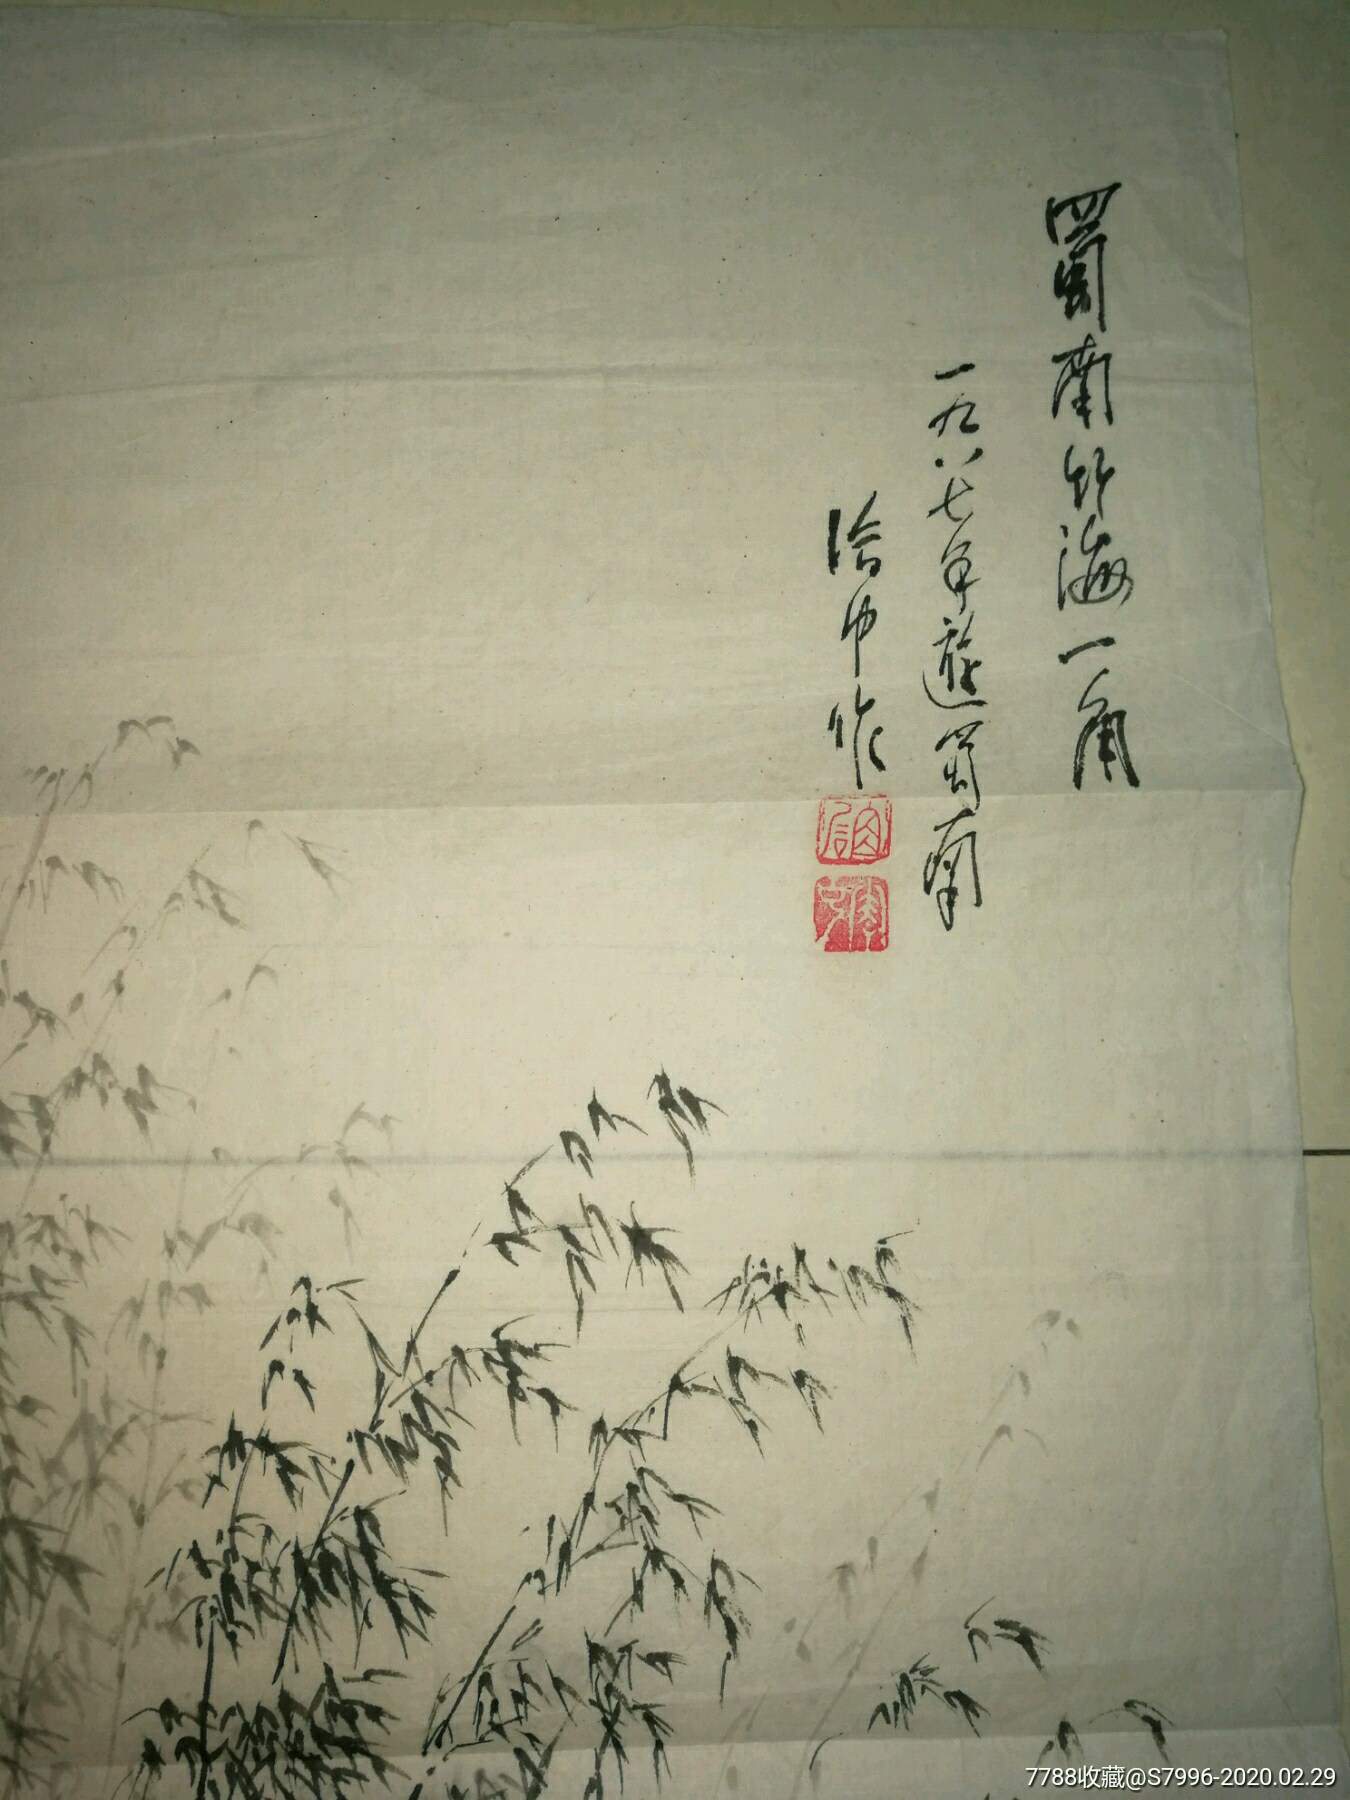 蜀南竹海一角
一九八七年遊蜀南
作
7788收藏@S7996-2020.02.29